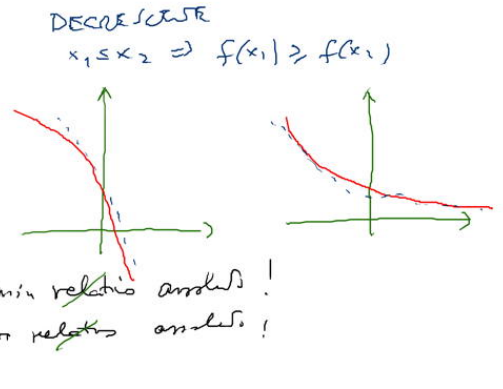 DECRESCENTE
x₁ ≤ x₂ ⇒ f(x₁) ≥ f(x₂)
min relativo assoluto !
relativo assoluto !